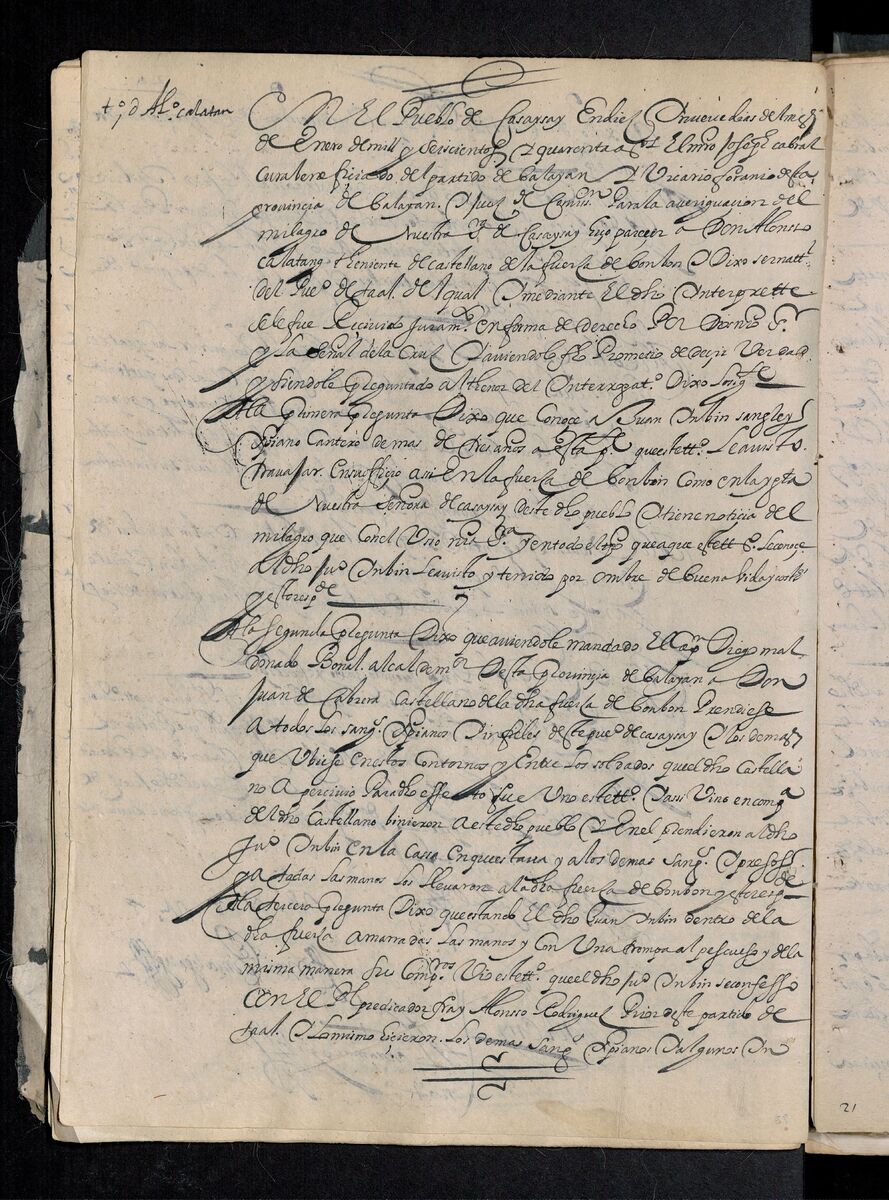 tº, d Alº. calatan
En El Pueblo de Casaysay En diez y nueve dias del mes
de Enero de mill y seiscientos y quarenta as. El mro Joseph cabral
cura benefiçiado del partido de balayan y Vicario foranio desta
provincia de balayan. y Juez de Comissn. Para la averiguacion del
milagro de Nuestra Sª. de Casaysay hizo pareçer a Don Alonso
calatang theniente de castellano de la fuersa de bonbon y Dixo ser natt.
del Pueº. de taal. del qual y mediante El dho Interprette
sele fue Recivido Juramtº. en forma de derecho Por Dios nrº Sr.
y la señal de la Cruz y aviendolo fho Prometio de deçir Verdad
y siendole preguntado al thenor del Interrogatº. Dixo lo sigte
A la primera pregunta Dixo que Conoçe a Juan Inbin sangley
Xpiano Cantero de mas de tres años a esta pte. que este ttº. Le a visto.
travajar. en su offiçio asi En la fuersa de bonbon Como en la ygla
de Nuestra Señora de casaysay deste dho pueblo y tiene notiçia del
milagro que Con el Usso nra Sª. y en todo el tpo que a que este ttº. le conoçe
al dho Juº. Inbin Le a visto y tenido por ombre de buena Vida y costs
y esto respde
A la segunda pregunta Dixo que aviendole mandado El capn Diego mal
donado Bonal. alcalde mor. Desta Provinçia de balayan a Don
Juan de Cabrera Castellano de la dha fuersa de bonbon Prendiese
a todos los sangs. Xpianos y infieles deste pueº. de casaysay y los demas
que Ubiese en estos Contornos y Entre los soldados que el dho Castella
no aperçivio Para dho effecto fue Uno este ttº. y assi Vino en compª
del dho Castellano binieron a este dho pueblo y En el prendieron al dho
Juº. Inbin en la Cassa en que estava y a los demas sangs. y presos
y atadas las manos los llevaron a la dha fuersa de bonbon y esto respde
A la terçera pregunta Dixo que estando El dho Juan Inbin dentro de la
dha fuersa amarradas las manos y con Una trompa al pescueso y de la
misma manera sus Compros. Vio este ttº. que el dho Juº. Inbin se confesso
Con El Pe. predicador fray Alonsso Rodriguez Prior deste partido de
taal. y lo mismo hiçieron. los demas sangs. Xpianos y algunos In
21